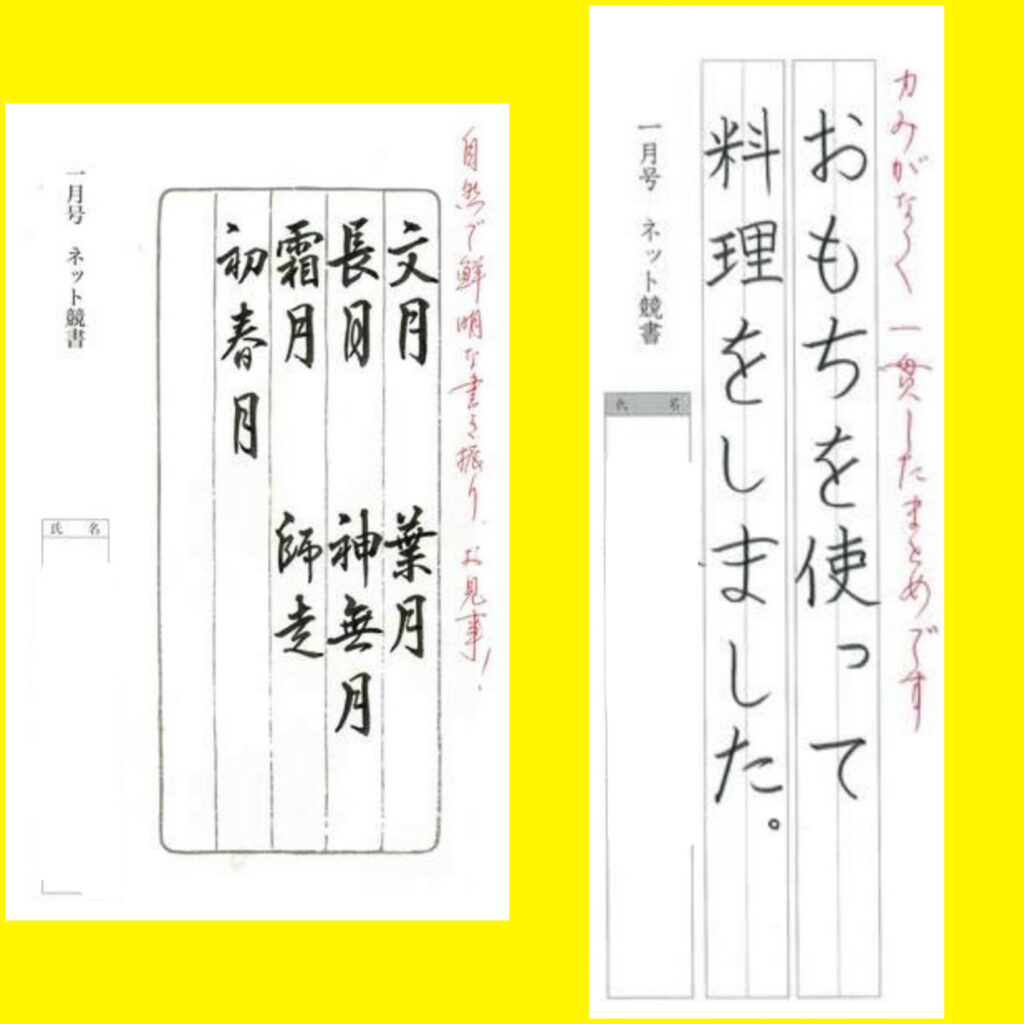 自然で鮮明な書き振り、お見事!
文月 葉月
長月 神無月
霜月 師走
初春月
一月号 ネット競書
氏 名
力みがなく 一貫したまとめです
おもちを使って
料理をしました。
一月号 ネット競書
氏 名